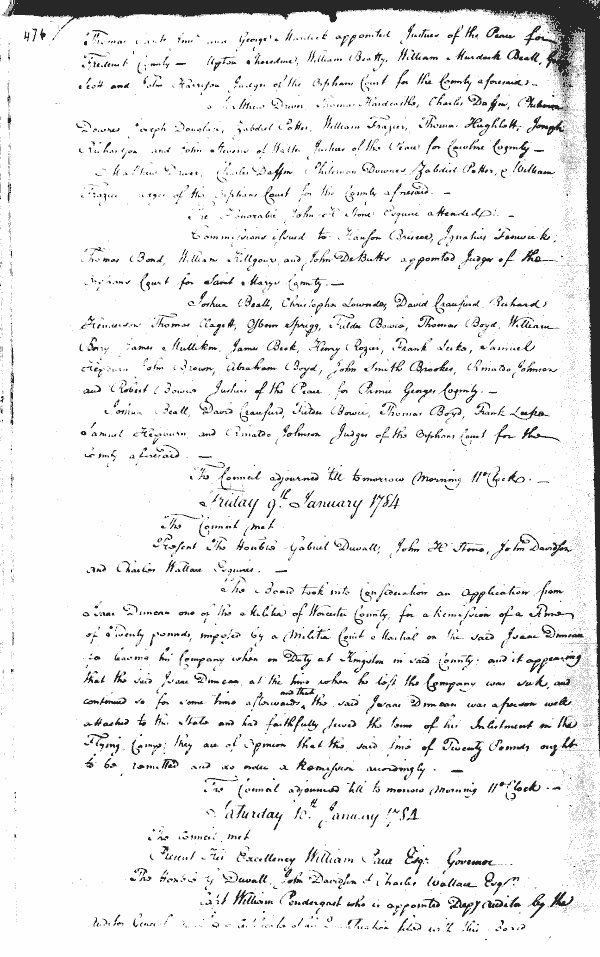 476
Thomas and George Murdock appointed Justices of the Peace for
Frederick County — Upton Sheredine, William Beatty, William Murdock Beall,
Scott and John Harrison Judges of the Orphans Court for the County aforesaid. —
Matthew Driver Thomas Hardcastle, Charles Daffin, Philemon
Downes Joseph Douglass, Zabdiel Potter, William Frazier, Thomas Hughlett, Joseph
Richardson and John Stevens of Walter Justices of the Peace for Caroline County —
Matthew Driver, Charles Daffin Philemon Downes, Zabdiel Potter, & William
Frazier Judges of the Orphans Court for the County aforesaid. —
The Honorable John H Stone Esquire attended. —
Commissions issued to Hanson Briscoe, Ignatius Fenwick
Thomas Bond, William Killgour, and John DeButts appointed Judges of the
Orphans Court for Saint Marys County. —
Joshua Beall, Christopher Lowndes, David Craufurd, Richard
Henderson Thomas Clagett, Osborn Sprigg, Fielder Bowie, Thomas Boyd, William
Berry James Mullikin, James Beck, Henry Rozier, Frank Leeke, Samuel
Hepburn John Brown, Abraham Boyd, John Smith Brookes, Rinaldo Johnson
and Robert Bowie Justices of the Peace for Prince Georges County. —
Joshua Beall, David Craufurd, Fielder Bowie, Thomas Boyd, Frank Leeke
Samuel Hepburn and Rinaldo Johnson Judges of the Orphans Court for the
County aforesaid. —
The Council adjourned till tomorrow Morning 11 oClock. —
Friday 9th January 1784
The Council met
Present The Honble Gabriel Duvall, John H Stone, John Davidson
and Charles Wallace Esquires. —
The Board took into Consideration an Application from
Isaac Duncan one of the Militia of Worcester County, for a Remission of a Fine
of Twenty pounds, imposed by a Militia Court Martial on the said Isaac Duncan
for leaving his Company when on Duty at Kingston in said County: and it appearing
that the said Isaac Duncan, at the time when he left the Company was sick, and
continued so for some time afterwards, and that the said Isaac Duncan was a person well
attached to the State and had faithfully served the term of his Inlistment in the
Flying Camp; they are of Opinion that the said fine of Twenty Pounds ought
to be remitted and do order a Remission accordingly. —
The Council adjourned till to morrow Morning 11 oClock. —
Saturday 10th January 1784
The Council met
Present His Excellency William Paca Esqr. Governor
The Honble G Duvall, John Davidson & Charles Wallace Esqrs
Capt William Pendergast who is appointed Depy Auditor by the
Auditor General a Certificate of his Qualification filed with this Board